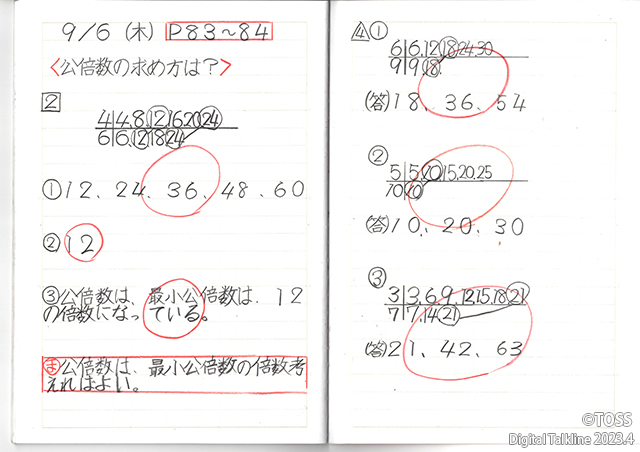 9/6 (木) P83〜84
<公倍数の求め方は？>
2
4|4.8.12.16.20.24
6|6.12.18.24
①12、24、36、48、60
②12
③公倍数は、最小公倍数は、12
の倍数になっている。
ま公倍数は、最小公倍数の倍数考
えればよい。
4①
6|6.12.18.24.30
9|9.18.
(答)18、36、54
②
5|5.10.15.20.25
10|10
(答)10、20、30
③
3|3.6.9.12.15.18.21
7|7.14.21
(答)21、42、63
©TOSS
Digital Talkline 2023.4